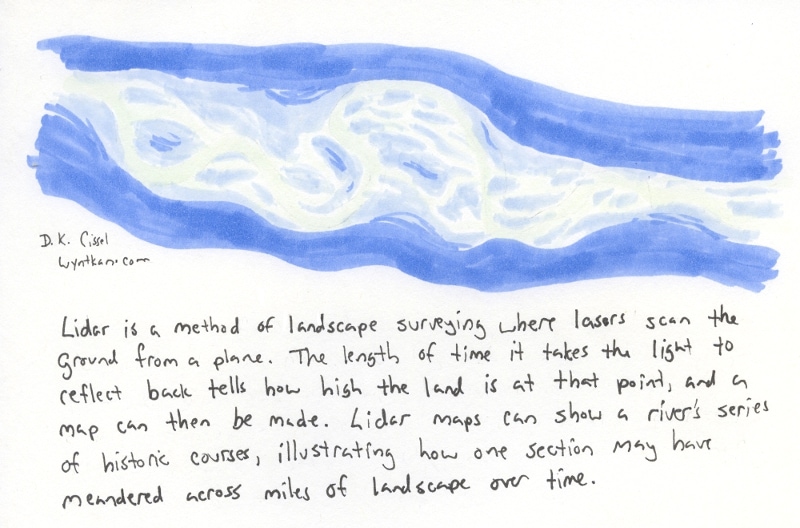 D. K. Cissel
wyntkan.com
Lidar is a method of landscape surveying where lasers scan the
ground from a plane. The length of time it takes the light to
reflect back tells how high the land is at that point, and a
map can then be made. Lidar maps can show a river's series
of historic courses, illustrating how one section may have
meandered across miles of landscape over time.